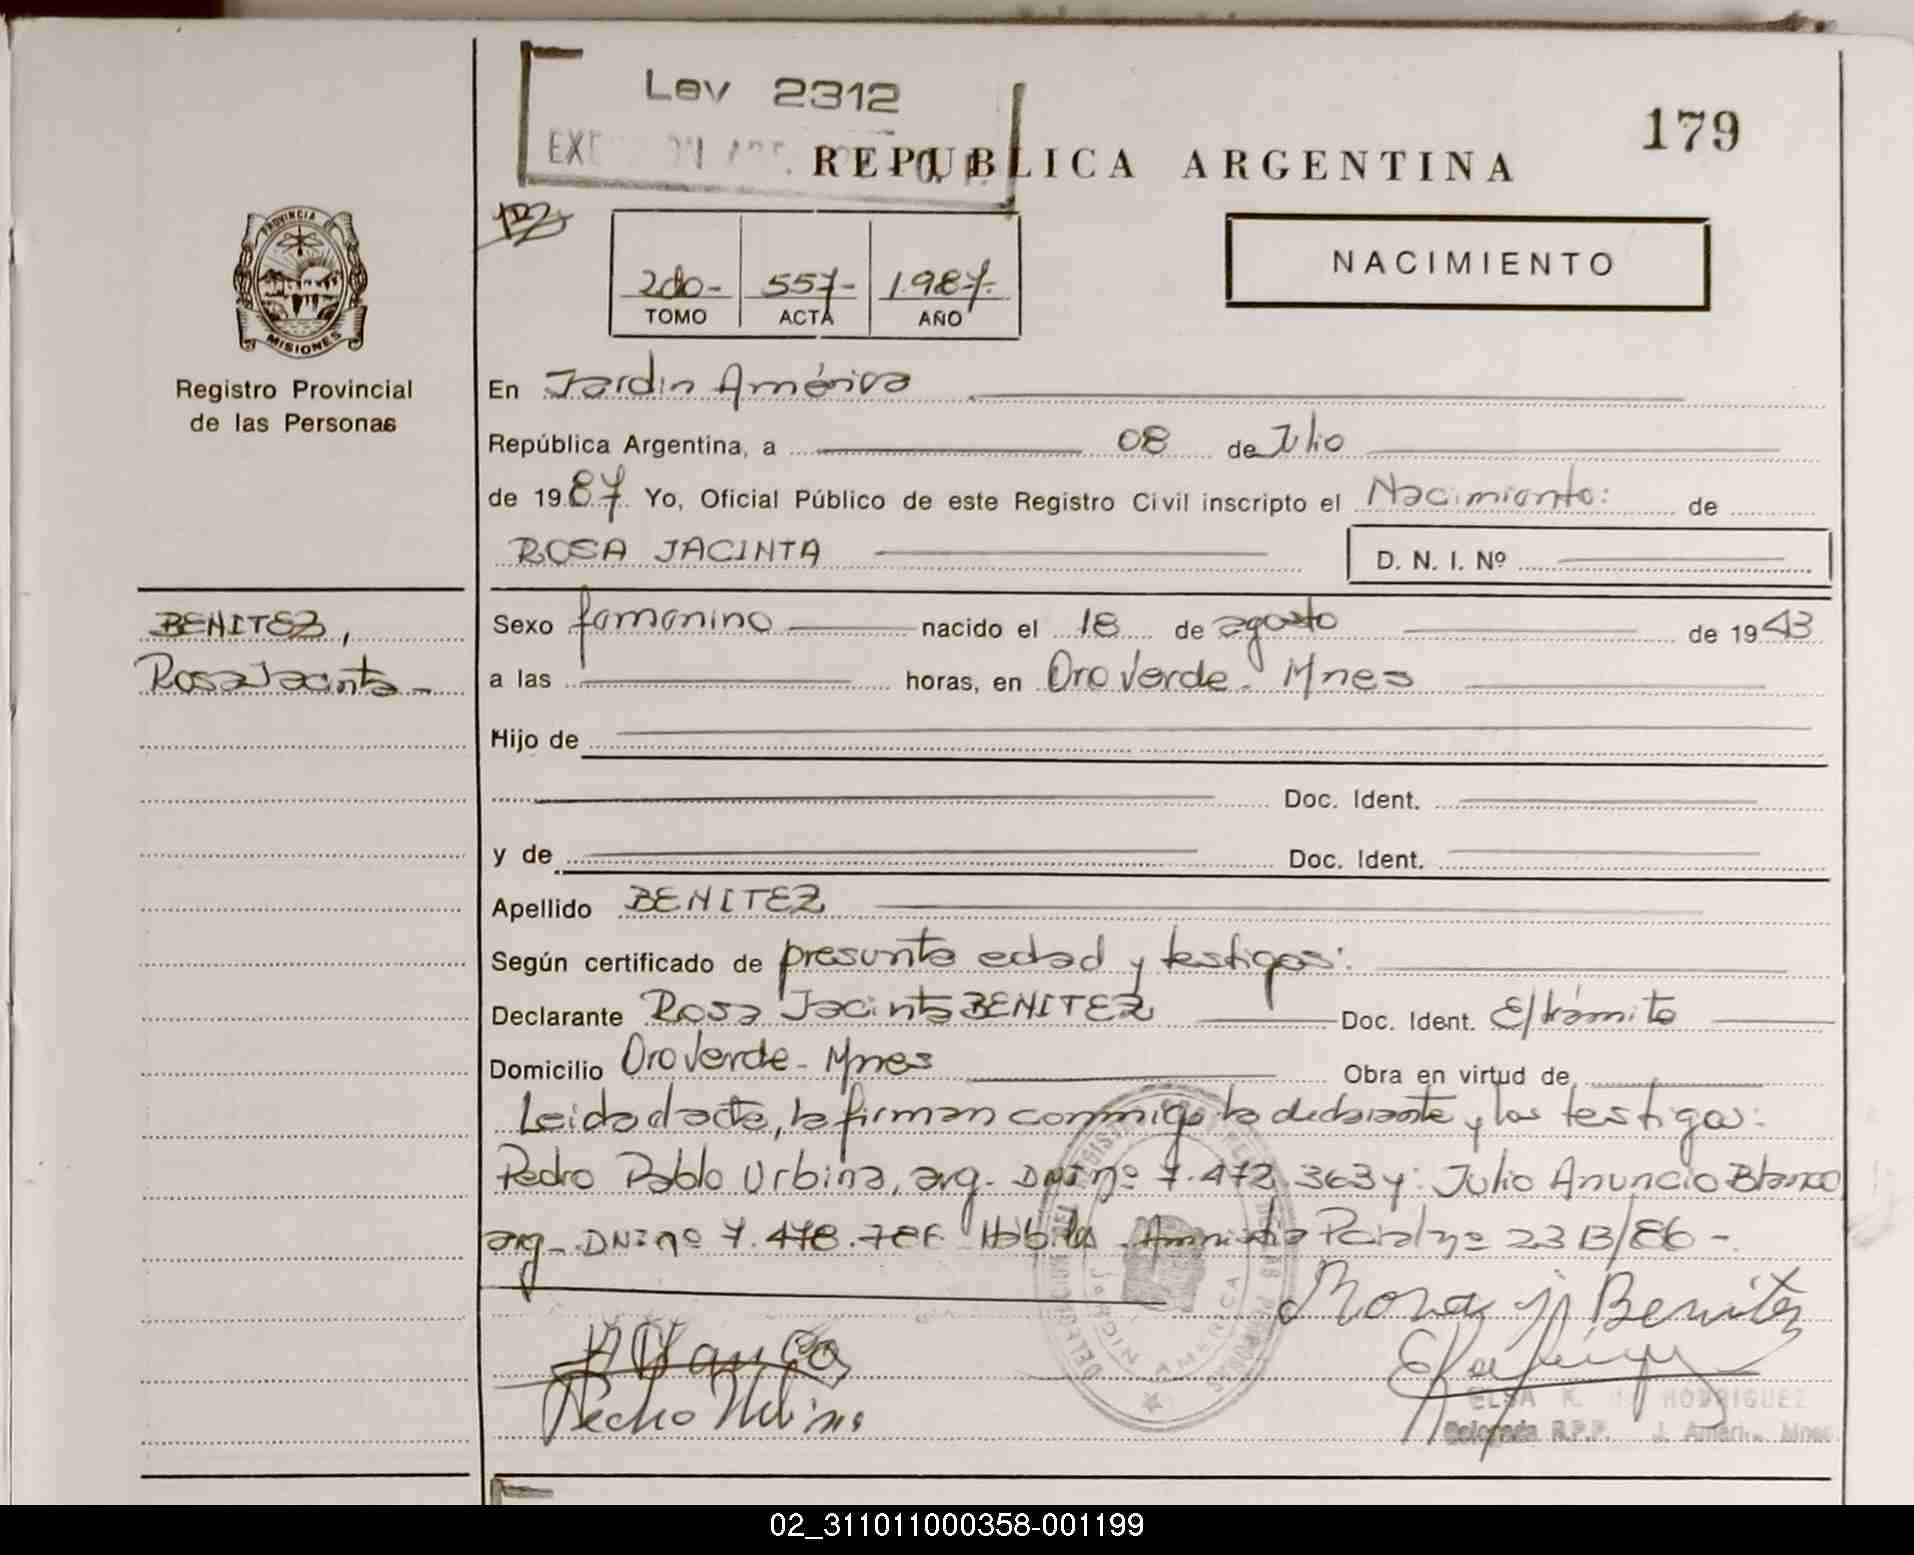 Ley 2312
179
REPUBLICA ARGENTINA
NACIMIENTO
2do- 557- 1.987-
TOMO ACTA AÑO
PROVINCIA DE
MISIONES
Registro Provincial
de las Personas
En Jardin América
República Argentina, a 08 de Julio
de 1987. Yo, Oficial Público de este Registro Civil inscripto el Nacimiento: de
ROSA JACINTA D. N. I. Nº
BENITEZ,
Rosa Jacinta -
Sexo femenino nacido el 18 de agosto de 1943
a las horas, en Oro Verde - Mnes
Hijo de
Doc. Ident.
y de Doc. Ident.
Apellido BENITEZ
Según certificado de presunta edad y testigos:
Declarante Rosa Jacinta BENITEZ Doc. Ident. E/trámite
Domicilio Oro Verde - Mnes Obra en virtud de
Leida el acta, la firman conmigo la declarante y los testigos:
Pedro Pablo Urbina, arg. DNI nº 7.472.363 y: Julio Anuncio Blanco
arg. DNI nº 7.478. Hábiles. Amnistia nº 2313/86 -.
Rosa J Benitez
Blanco
Pedro Urbina
JARDIN AMERICA
ELSA K. de RODRIGUEZ
R.P.P. J. Amer. Mnes
02_311011000358-001199